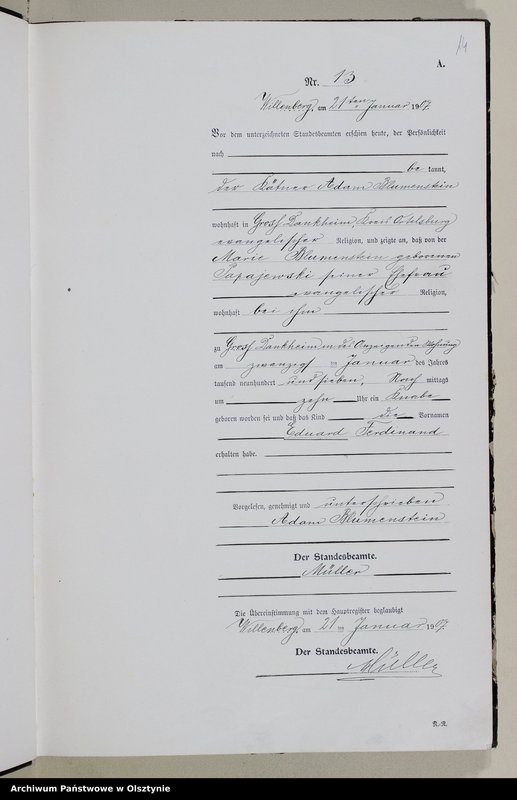 14
A.
Nr. 13
Willenberg, am 21ten Januar 1907.
Vor dem unterzeichneten Standesbeamten erschien heute, der Persönlichkeit
nach
be kannt,
der Kätner Adam Blumenstein
wohnhaft in Gross Dankheim, Kreis Ortelsburg
evangelischer Religion, und zeigte an, daß von der
Marie Blumenstein geborenen
Sapajewski seiner Ehefrau
evangelischer Religion,
wohnhaft bei ihm
zu Gross Dankheim in des Anzeigenden Wohnung
am zwanzigs ten Januar des Jahres
tausend neunhundert und sieben, Nach mittags
um zehn Uhr ein Knabe
geboren worden sei und daß das Kind die Vornamen
Eduard Ferdinand
erhalten habe.
Vorgelesen, genehmigt und unterschrieben
Adam Blumenstein
Der Standesbeamte.
Müller
Die Übereinstimmung mit dem Hauptregister beglaubigt
Willenberg, am 21 ten Januar 1907.
Der Standesbeamte.
Müller
Archiwum Państwowe w Olsztynie